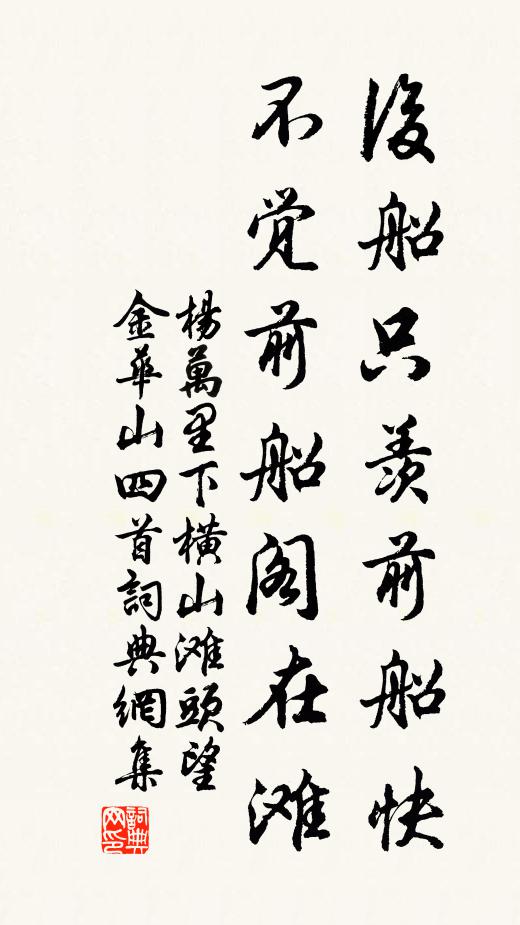 後船只羨前船快
不覚前船阁在滩
楊萬里下横山滩頭望
金華山四首詞典網集
詞典网印